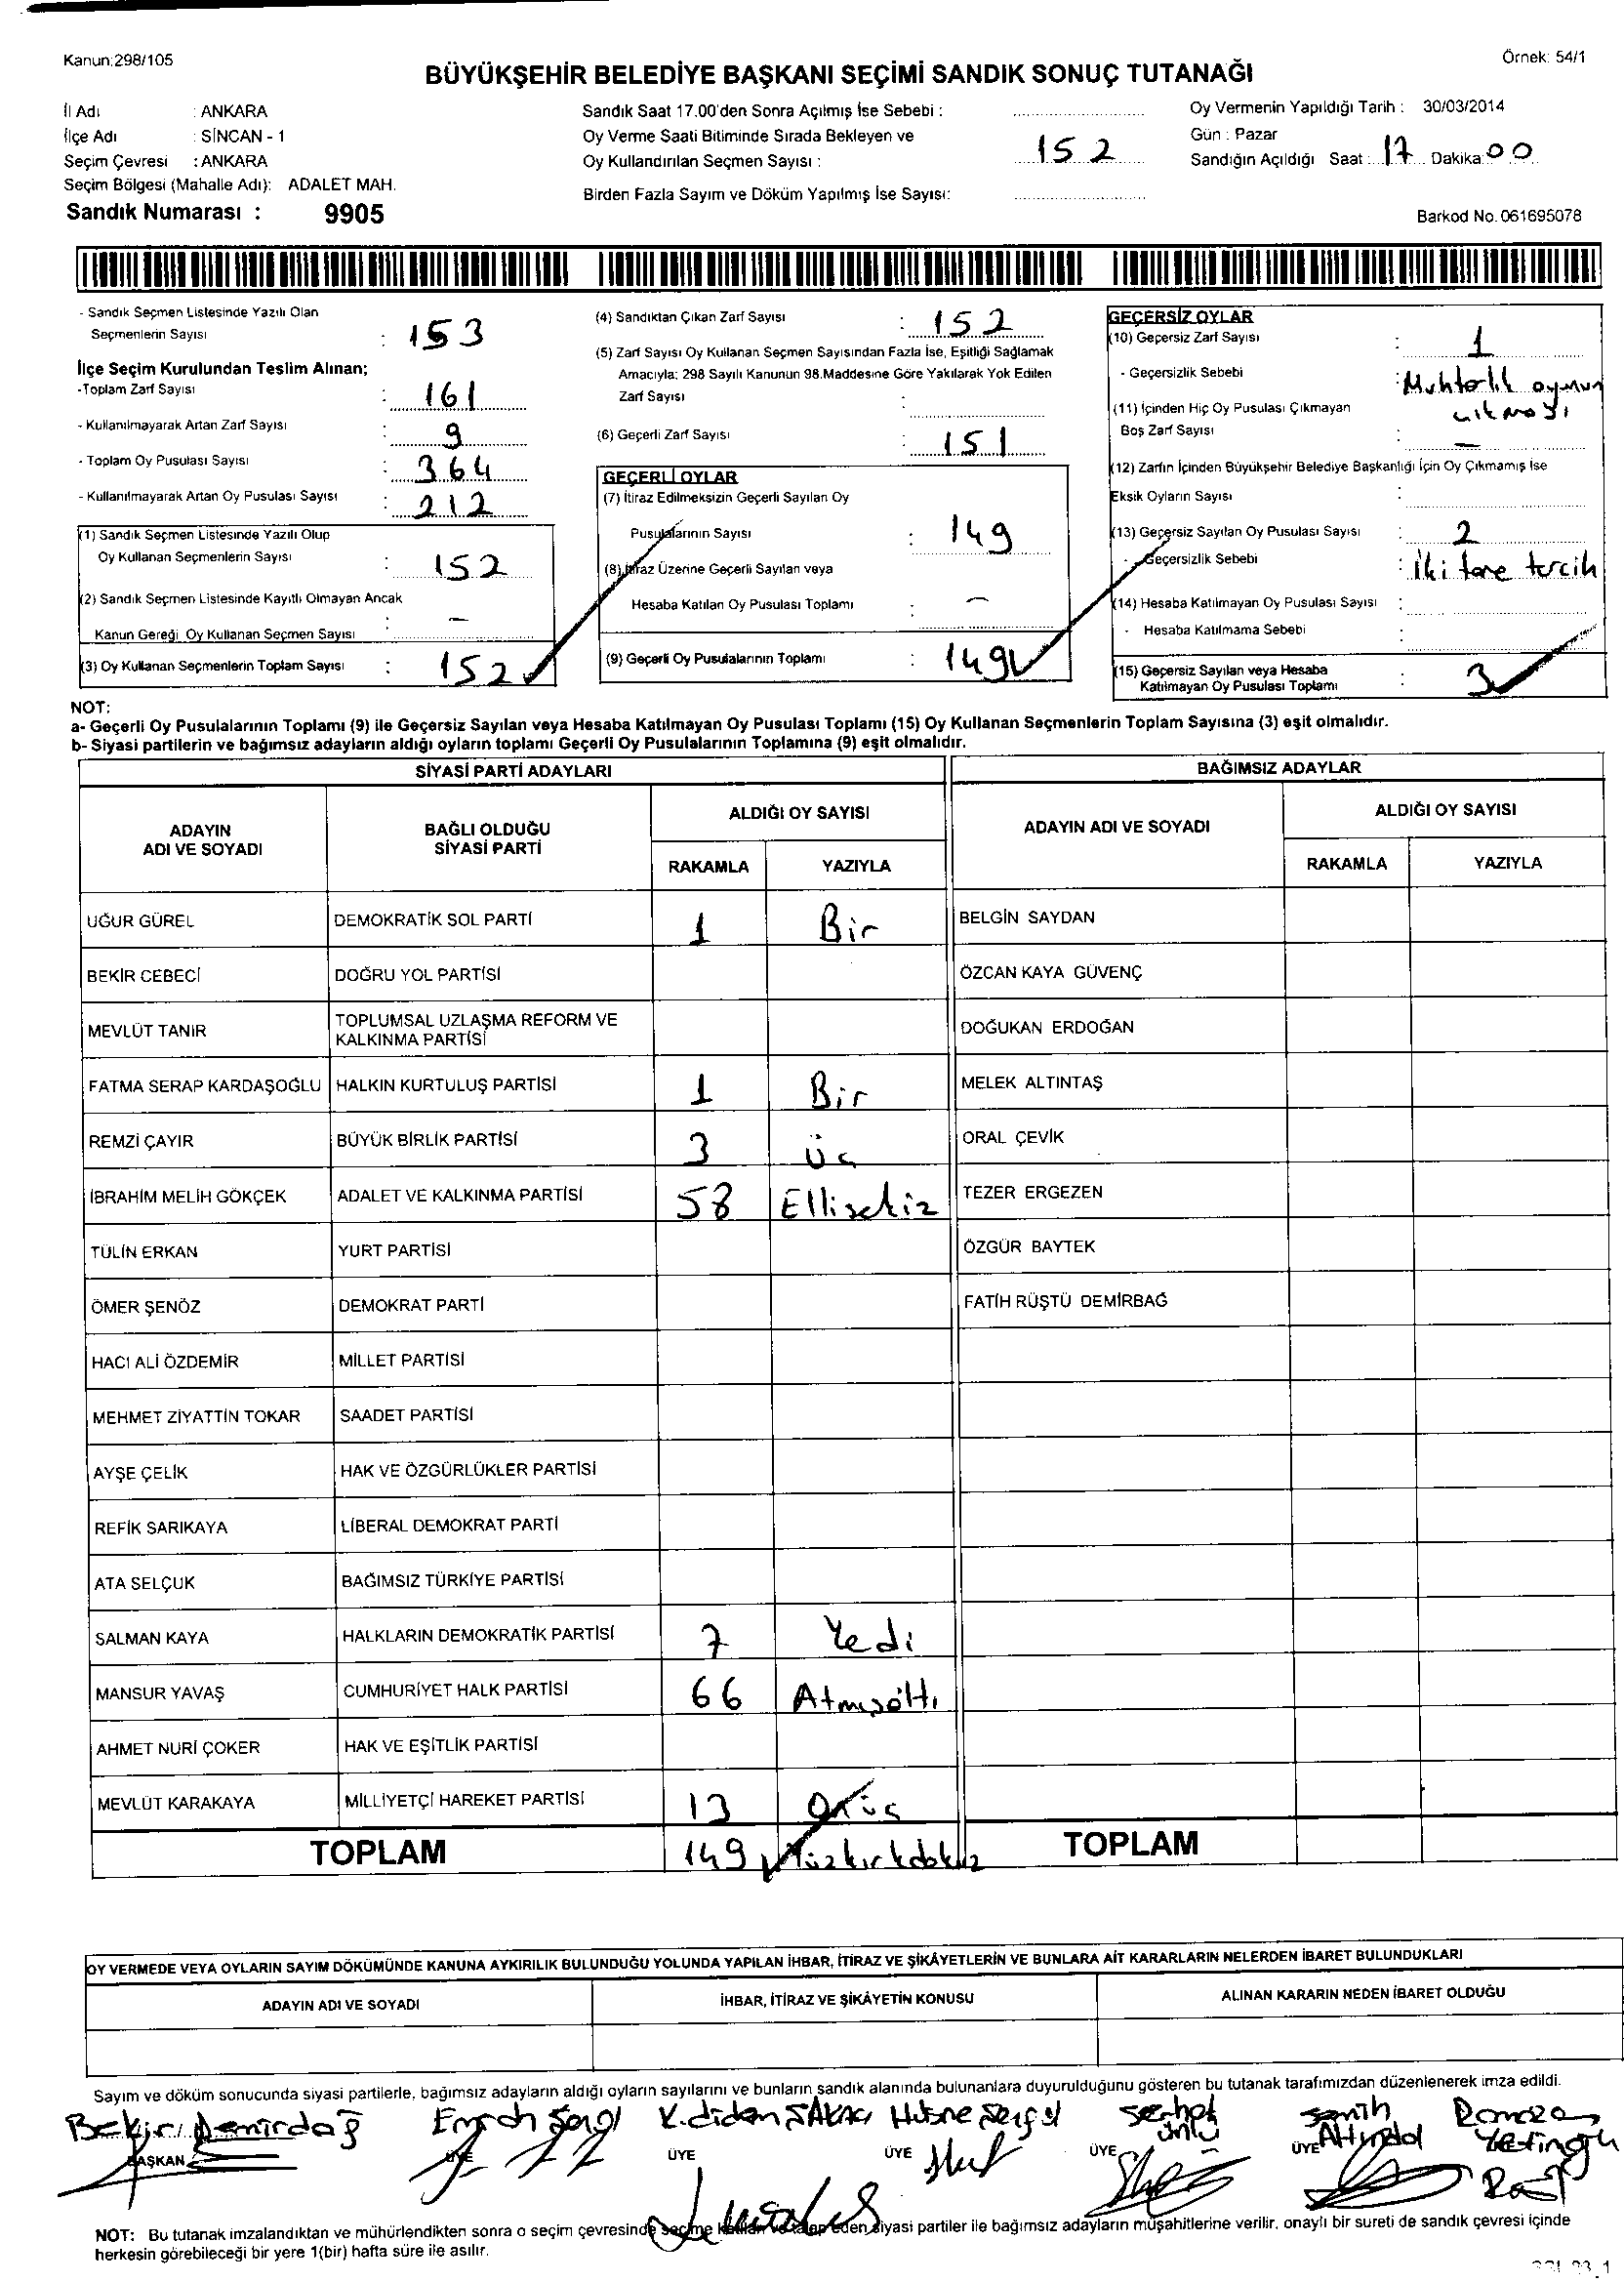 Kanun:298/105
Örnek: 54/1
BÜYÜKŞEHİR BELEDİYE BAŞKANI SEÇİMİ SANDIK SONUÇ TUTANAĞI
İl Adı : ANKARA
İlçe Adı : SİNCAN - 1
Seçim Çevresi : ANKARA
Seçim Bölgesi (Mahalle Adı): ADALET MAH.
Sandık Numarası : 9905
Sandık Saat 17.00'den Sonra Açılmış İse Sebebi :
Oy Verme Saati Bitiminde Sırada Bekleyen ve
Oy Kullandırılan Seçmen Sayısı : 152
Birden Fazla Sayım ve Döküm Yapılmış İse Sayısı:
Oy Vermenin Yapıldığı Tarih : 30/03/2014
Gün : Pazar
Sandığın Açıldığı Saat : 17 Dakika: 00
Barkod No. 061695078
- Sandık Seçmen Listesinde Yazılı Olan
Seçmenlerin Sayısı : 153
İlçe Seçim Kurulundan Teslim Alınan;
-Toplam Zarf Sayısı : 161
- Kullanılmayarak Artan Zarf Sayısı : 9
- Toplam Oy Pusulası Sayısı : 364
- Kullanılmayarak Artan Oy Pusulası Sayısı : 212
(1) Sandık Seçmen Listesinde Yazılı Olup
Oy Kullanan Seçmenlerin Sayısı : 152
(2) Sandık Seçmen Listesinde Kayıtlı Olmayan Ancak
Kanun Gereği Oy Kullanan Seçmen Sayısı : -
(3) Oy Kullanan Seçmenlerin Toplam Sayısı : 152
(4) Sandıktan Çıkan Zarf Sayısı : 152
(5) Zarf Sayısı Oy Kullanan Seçmen Sayısından Fazla İse, Eşitliği Sağlamak
Amacıyla; 298 Sayılı Kanunun 98.Maddesine Göre Yakılarak Yok Edilen
Zarf Sayısı :
(6) Geçerli Zarf Sayısı : 151
GEÇERLİ OYLAR
(7) İtiraz Edilmeksizin Geçerli Sayılan Oy
Pusulalarının Sayısı : 149
(8) İtiraz Üzerine Geçerli Sayılan veya
Hesaba Katılan Oy Pusulası Toplamı : -
(9) Geçerli Oy Pusulalarının Toplamı : 149
GEÇERSİZ OYLAR
(10) Geçersiz Zarf Sayısı : 1
- Geçersizlik Sebebi : Muhtarlık oyunun
çıkmayı
(11) İçinden Hiç Oy Pusulası Çıkmayan
Boş Zarf Sayısı : -
(12) Zarfın İçinden Büyükşehir Belediye Başkanlığı İçin Oy Çıkmamış İse
Eksik Oyların Sayısı :
(13) Geçersiz Sayılan Oy Pusulası Sayısı : 2
- Geçersizlik Sebebi : İki tane tercih
(14) Hesaba Katılmayan Oy Pusulası Sayısı :
- Hesaba Katılmama Sebebi :
(15) Geçersiz Sayılan veya Hesaba
Katılmayan Oy Pusulası Toplamı : 3
NOT:
a- Geçerli Oy Pusulalarının Toplamı (9) ile Geçersiz Sayılan veya Hesaba Katılmayan Oy Pusulası Toplamı (15) Oy Kullanan Seçmenlerin Toplam Sayısına (3) eşit olmalıdır.
b- Siyasi partilerin ve bağımsız adayların aldığı oyların toplamı Geçerli Oy Pusulalarının Toplamına (9) eşit olmalıdır.
SİYASİ PARTİ ADAYLARI
BAĞIMSIZ ADAYLAR
ADAYIN ADI VE SOYADI
BAĞLI OLDUĞU SİYASİ PARTİ
ALDIĞI OY SAYISI
RAKAMLA YAZIYLA
ADAYIN ADI VE SOYADI
ALDIĞI OY SAYISI
RAKAMLA YAZIYLA
UĞUR GÜREL DEMOKRATİK SOL PARTİ 1 Bir BELGİN SAYDAN
BEKİR CEBECİ DOĞRU YOL PARTİSİ ÖZCAN KAYA GÜVENÇ
MEVLÜT TANIR TOPLUMSAL UZLAŞMA REFORM VE KALKINMA PARTİSİ DOĞUKAN ERDOĞAN
FATMA SERAP KARDAŞOĞLU HALKIN KURTULUŞ PARTİSİ 1 Bir MELEK ALTINTAŞ
REMZİ ÇAYIR BÜYÜK BİRLİK PARTİSİ 3 Üç ORAL ÇEVİK
İBRAHİM MELİH GÖKÇEK ADALET VE KALKINMA PARTİSİ 58 Ellisekiz TEZER ERGEZEN
TÜLİN ERKAN YURT PARTİSİ ÖZGÜR BAYTEK
ÖMER ŞENÖZ DEMOKRAT PARTİ FATİH RÜŞTÜ DEMİRBAĞ
HACI ALİ ÖZDEMİR MİLLET PARTİSİ
MEHMET ZİYATTİN TOKAR SAADET PARTİSİ
AYŞE ÇELİK HAK VE ÖZGÜRLÜKLER PARTİSİ
REFİK SARIKAYA LİBERAL DEMOKRAT PARTİ
ATA SELÇUK BAĞIMSIZ TÜRKİYE PARTİSİ
SALMAN KAYA HALKLARIN DEMOKRATİK PARTİSİ 7 Yedi
MANSUR YAVAŞ CUMHURİYET HALK PARTİSİ 66 Atmışaltı
AHMET NURİ ÇOKER HAK VE EŞİTLİK PARTİSİ
MEVLÜT KARAKAYA MİLLİYETÇİ HAREKET PARTİSİ 13 Onüç
TOPLAM 149 Yüzkırkdokuz TOPLAM
OY VERMEDE VEYA OYLARIN SAYIM DÖKÜMÜNDE KANUNA AYKIRILIK BULUNDUĞU YOLUNDA YAPILAN İHBAR, İTİRAZ VE ŞİKÂYETLERİN VE BUNLARA AİT KARARLARIN NELERDEN İBARET BULUNDUKLARI
ADAYIN ADI VE SOYADI İHBAR, İTİRAZ VE ŞİKÂYETİN KONUSU ALINAN KARARIN NEDEN İBARET OLDUĞU
Sayım ve döküm sonucunda siyasi partilerle, bağımsız adayların aldığı oyların sayılarını ve bunların sandık alanında bulunanlara duyurulduğunu gösteren bu tutanak tarafımızdan düzenlenerek imza edildi.
Bekir Demirdağ
Serhat Ünlü
Semih
Ramazan
BAŞKAN ÜYE ÜYE ÜYE ÜYE ÜYE
NOT: Bu tutanak imzalandıktan ve mühürlendikten sonra o seçim çevresinde seçime katılan ve talep eden siyasi partiler ile bağımsız adayların müşahitlerine verilir, onaylı bir sureti de sandık çevresi içinde
herkesin görebileceği bir yere 1(bir) hafta süre ile asılır.